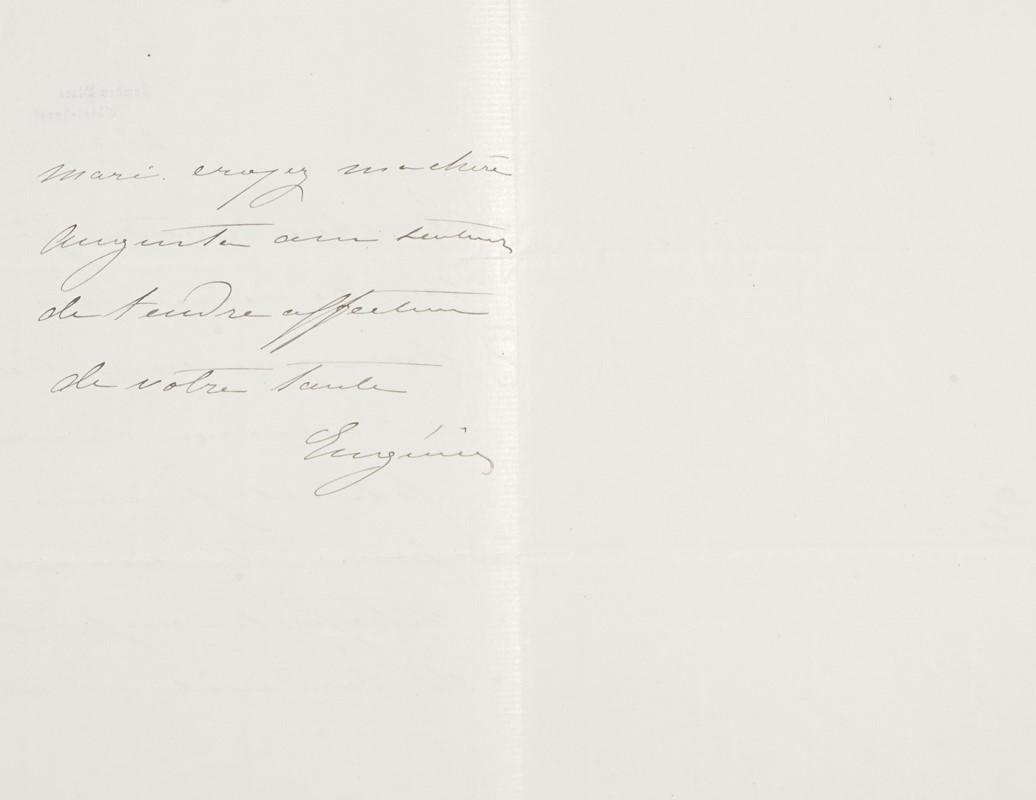 mari. croyez ma chère
Augusta aux sentiments
de tendre affection
de votre tante
Eugénie